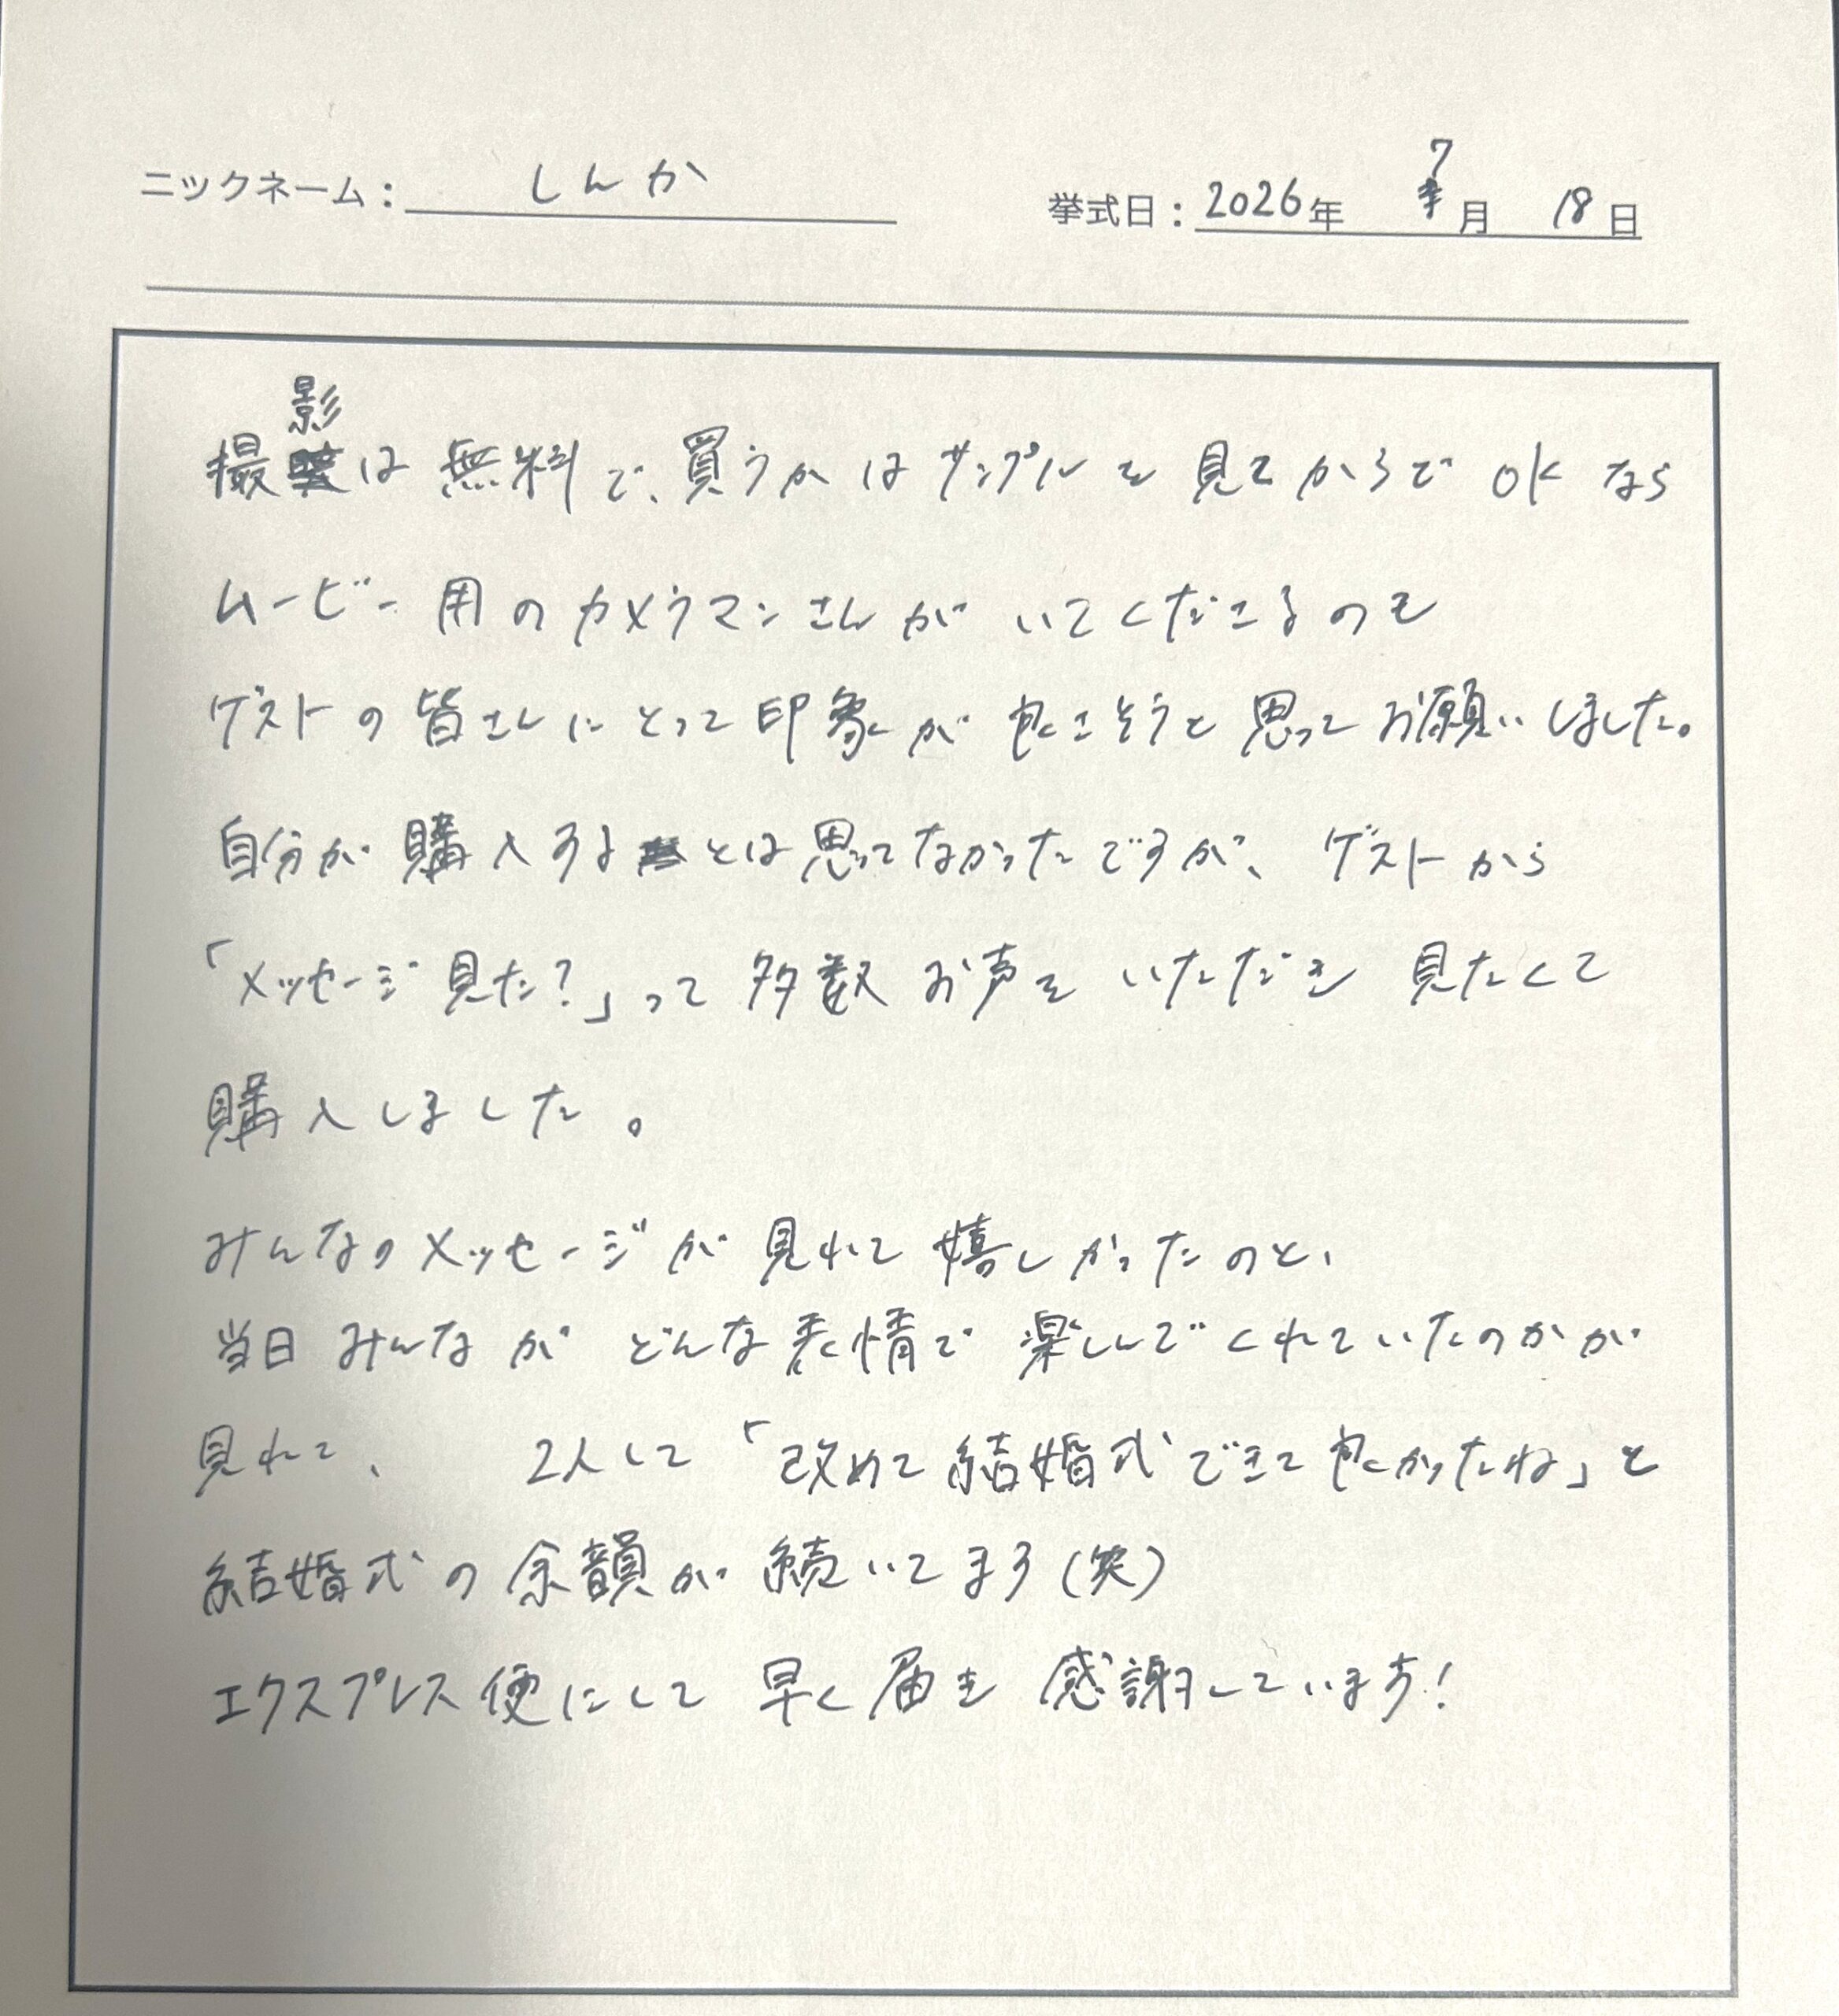 ニックネーム： しんか
挙式日： 2026年 7月 18日
撮影は無料で、買うかはサンプルを見てからでOKなら
ムービー用のカメラマンさんがいてくださるのも
ゲストの皆さんにとって印象が良さそうと思ってお願いしました。
自分が購入するとは思ってなかったですが、ゲストから
「メッセージ見た？」って多数お声をいただき見たくて
購入しました。
みんなのメッセージが見れて嬉しかったのと、
当日みんながどんな表情で楽しんでくれていたのかが
見れて、2人して「改めて結婚式できて良かったね」と
結婚式の余韻が続いてます（笑）
エクスプレス便にして早く届き感謝しています！